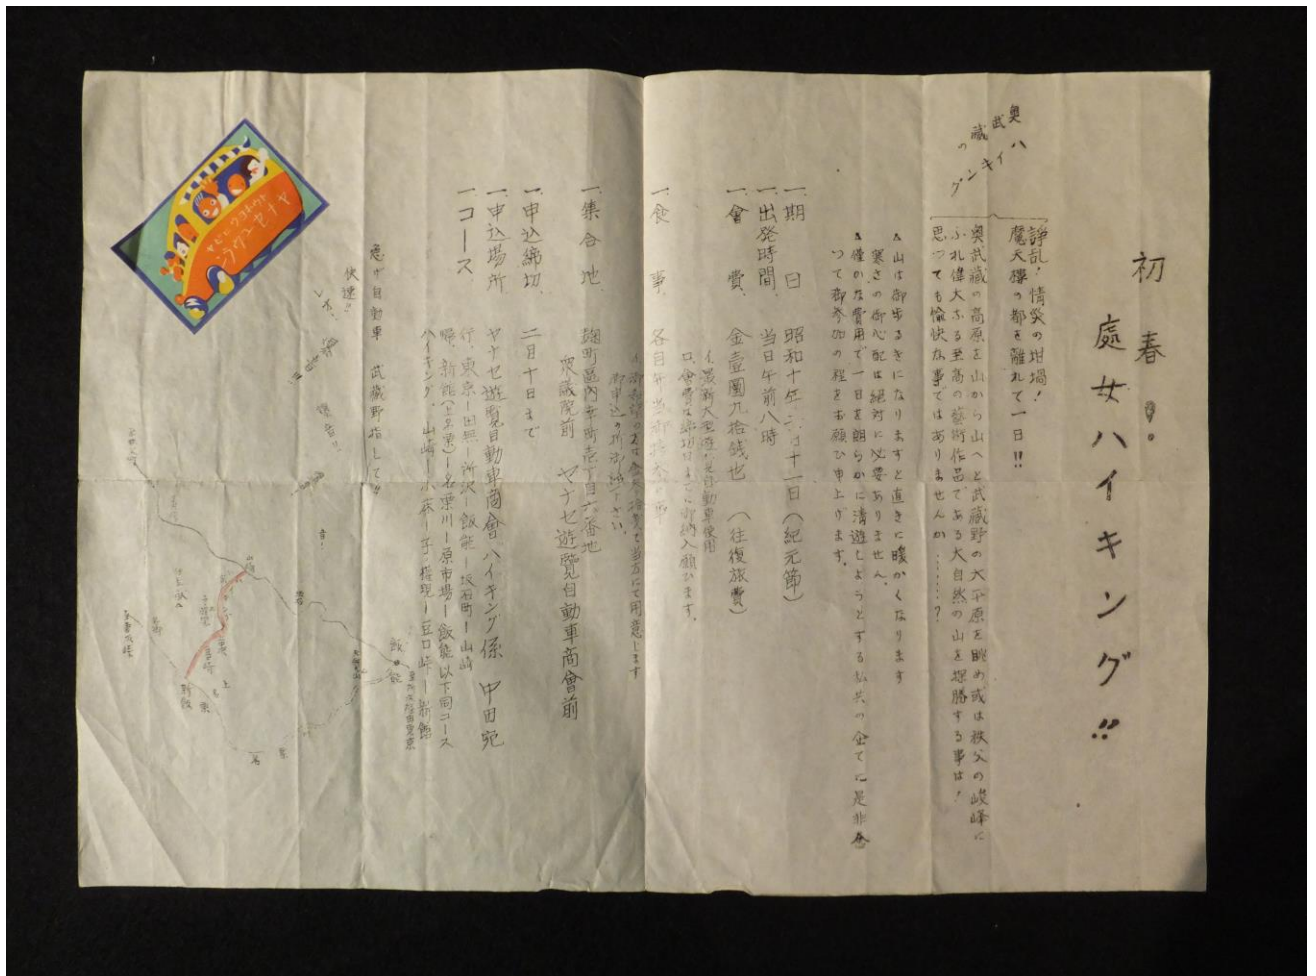 初春の。
處女ハイキング!!
奥武蔵の
ハイキング
諍乱!情炎の坩堝!
魔天樓の都を離れて一日!!
奥武蔵の高原を山から山へと武蔵野の大平原を眺め或は秩父の峻峰に
ふれ偉大なる至高の藝術作品である大自然の山を探勝する事は!
思つても愉快な事ではありませんか……?
山は御歩るきになりますと直きに暖かくなります
寒さの御心配は絶対に必要ありません。
僅かな費用で一日を朗らかに清遊しようとする私共の企てに是非会
つて御参加の程をお願ひ申上げます。
一、期日 昭和十年二月十一日(紀元節)
一、出発時間、当日午前八時
一、會費、金壹圓九拾銭也(往復旅費)
イ、最新大型遊覧自動車使用
ロ、會費は締切日までに御納入願ひます。
一、食事、各自弁当御持参の事
御希望の方は 当方にて用意します
御申込の際御 下さい。
一、集合地、麹町區内幸町壱丁目六番地
衆議院前 ヤナセ遊覧自動車商會前
一、申込締切、二月十日まで
一、申込場所 ヤナセ遊覧自動車商會ハイキング係 中田宛
一、コース 行、東京―田無―所沢―飯能―坂石町―山崎
帰、新舘(上名栗)―名栗川―原市場―飯能以下同コース
ハイキング、山崎―小床―子ノ権現―豆口峠―新舘
急げ自動車 武蔵野指して!!
快速!!
爆音!!
ヤナセユウラン
飯能
山崎
吾野
新舘
上名栗
名栗